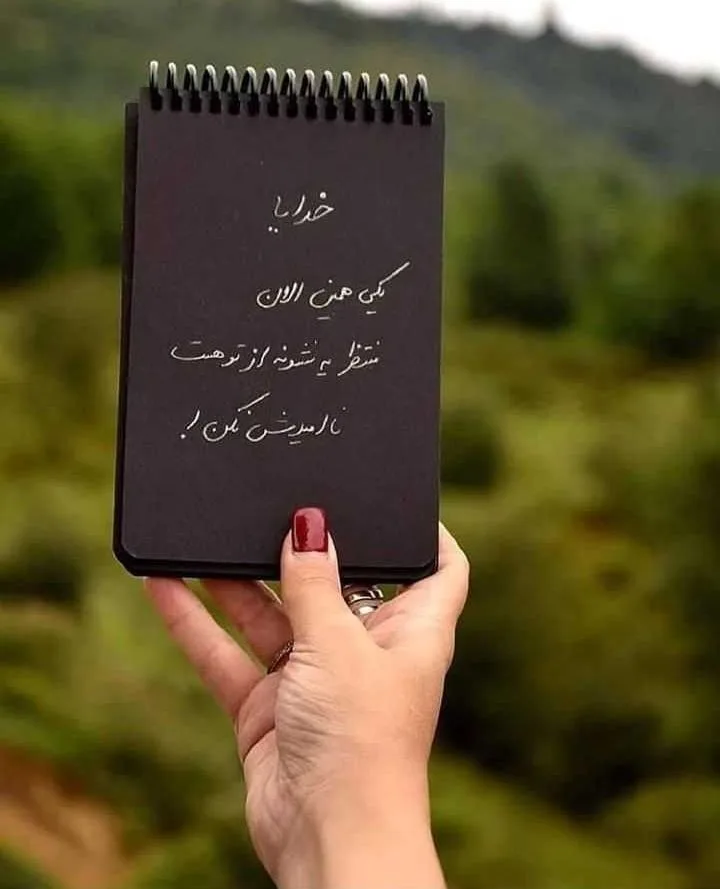 خدایا
یکی همین الان
منتظر یه نشونه از تو هست
ناامیدش نکن !